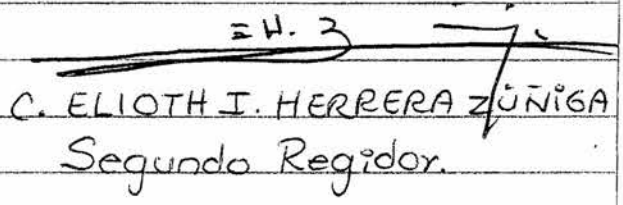 C. ELIOTH I. HERRERA ZÚÑIGA
Segundo Regidor.